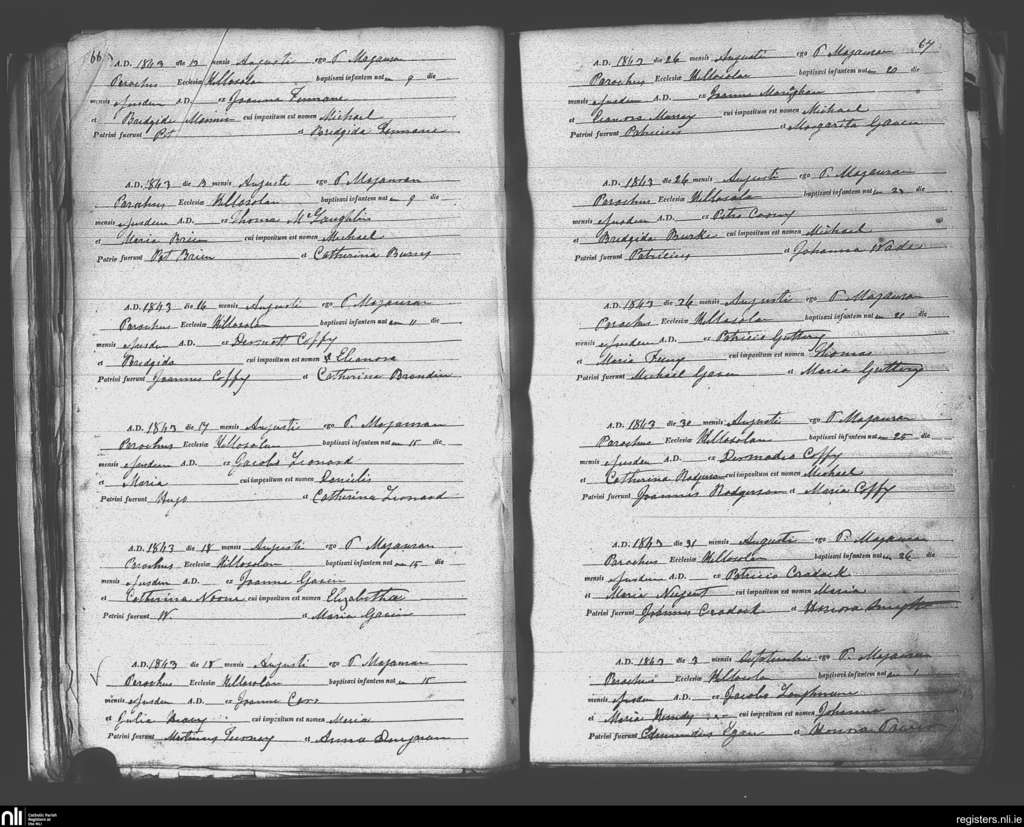 66
A.D. 1843 die 13 mensis Augusti ego P Magauran
Parochus Ecclesiæ Killosolan baptisavi infantem nat um 9 die
mensis ejusdem A.D. ex Joanne Finnane
et Bredgida cui impositum est nomen Michael
Patrini fuerunt Pat et Bredgida Finnane
A.D. 1843 die 13 mensis Augusti ego P Magauran
Parochus Ecclesiæ Killosolan baptisavi infantem nat um 9 die
mensis ejusdem A.D. ex Thoma McLaughlin
et Maria Brien cui impositum est nomen Michael
Patrin fuerunt Pat Brien et Catherina Burns
A.D. 1843 die 16 mensis Augusti ego P Magauran
Parochus Ecclesiæ Killosolan baptisavi infantem nat um 11 die
mensis ejusdem A.D. ex Dermot Coffy
et Bredgida cui impositum est nomen Eleanora
Patrini fuerunt Joannes Coffy et Catherina
A.D. 1843 die 17 mensis Augusti ego P. Magauran
Parochus Ecclesiæ Killosolan baptisavi infantem nat um 15 die
mensis ejusdem A.D. ex Jacobo Leonard
et Maria cui impositum est nomen Danielis
Patrini fuerunt Hugo et Catherina Leonard
A.D. 1843 die 18 mensis Augusti ego P Magauran
Parochus Ecclesiæ Killosolan baptisavi infantem nat um 15 die
mensis ejusdem A.D. ex Joanne Gaven
et Catherina Noone cui impositum est nomen Elizabetha
Patrini fuerunt W. et Maria
A.D. 1843 die 18 mensis Augusti ego P Magauran
Parochus Ecclesiæ Killosolan baptisavi infantem nat um 15
mensis ejusdem A.D. ex Joanne
et Julia cui impositum est nomen Maria
Patrini fuerunt Martinus et Anna
67
A.D. 1843 die 26 mensis Augusti ego P Magauran
Parochus Ecclesiæ Killosolan baptisavi infantem nat um 20 die
mensis ejusdem A.D. ex Joanne
et Eleanora Murray cui impositum est nomen Michael
Patrini fuerunt Patricius et Margarita Gaven
A.D. 1843 die 26 mensis Augusti ego P Magauran
Parochus Ecclesiæ Killosolan baptisavi infantem nat um 23 die
mensis ejusdem A.D. ex Petro
et Bredgida Burke cui impositum est nomen Michael
Patrini fuerunt Patricius et Johanna Wade
A.D. 1843 die 26 mensis Augusti ego P Magauran
Parochus Ecclesiæ Killosolan baptisavi infantem nat um 21 die
mensis ejusdem A.D. ex Patricio
et Maria Feeny cui impositum est nomen Thomas
Patrini fuerunt Michael Gaven et Maria
A.D. 1843 die 30 mensis Augusti ego P Magauran
Parochus Ecclesiæ Killosolan baptisavi infantem nat um 25 die
mensis ejusdem A.D. ex Dermodio Coffy
et Catherina Rodgerson cui impositum est nomen Michael
Patrini fuerunt Joannes Rodgerson et Maria Coffy
A.D. 1843 die 31 mensis Augusti ego P. Magauran
Parochus Ecclesiæ Killosolan baptisavi infantem nat um 26 die
mensis ejusdem A.D. ex Patricio Cradock
et Maria Nugent cui impositum est nomen Maria
Patrini fuerunt Johannes Cradock et Honora Smyth
A.D. 1843 die 3 mensis Septembris ego P. Magauran
Parochus Ecclesiæ Killosolan baptisavi infantem nat um 1 die
mensis ejusdem A.D. ex Jacobo
et Maria cui impositum est nomen Johanne
Patrini fuerunt Edmundus Egan et Honora
nli
Catholic Parish
Registers at
the NLI
registers.nli.ie